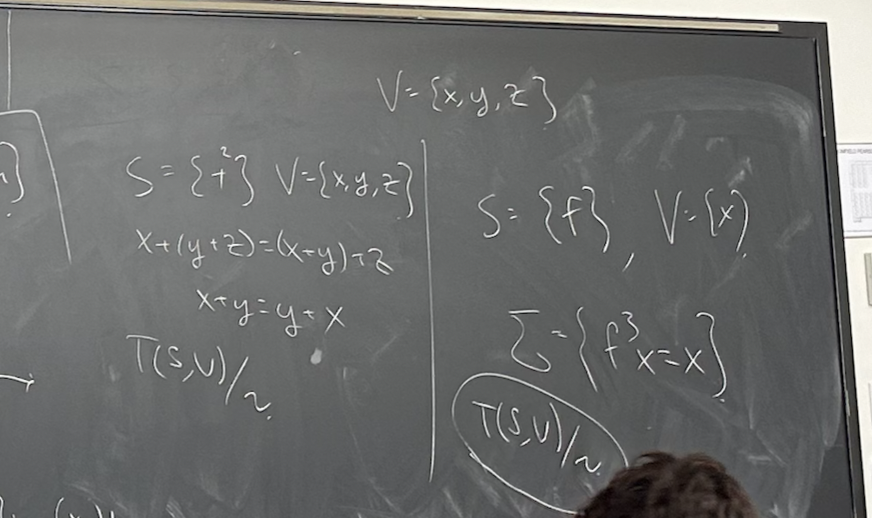 V={x,y,z}
S={+²} V={x,y,z}
x+(y+z)=(x+y)+z
x+y=y+x
T(S,V)/~
S={f}, V={x}
Σ={f³x=x}
T(S,V)/~